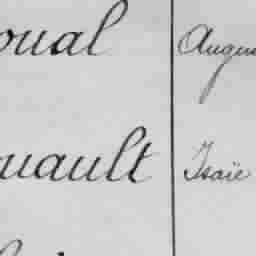 oual Augu
uault Isaïe